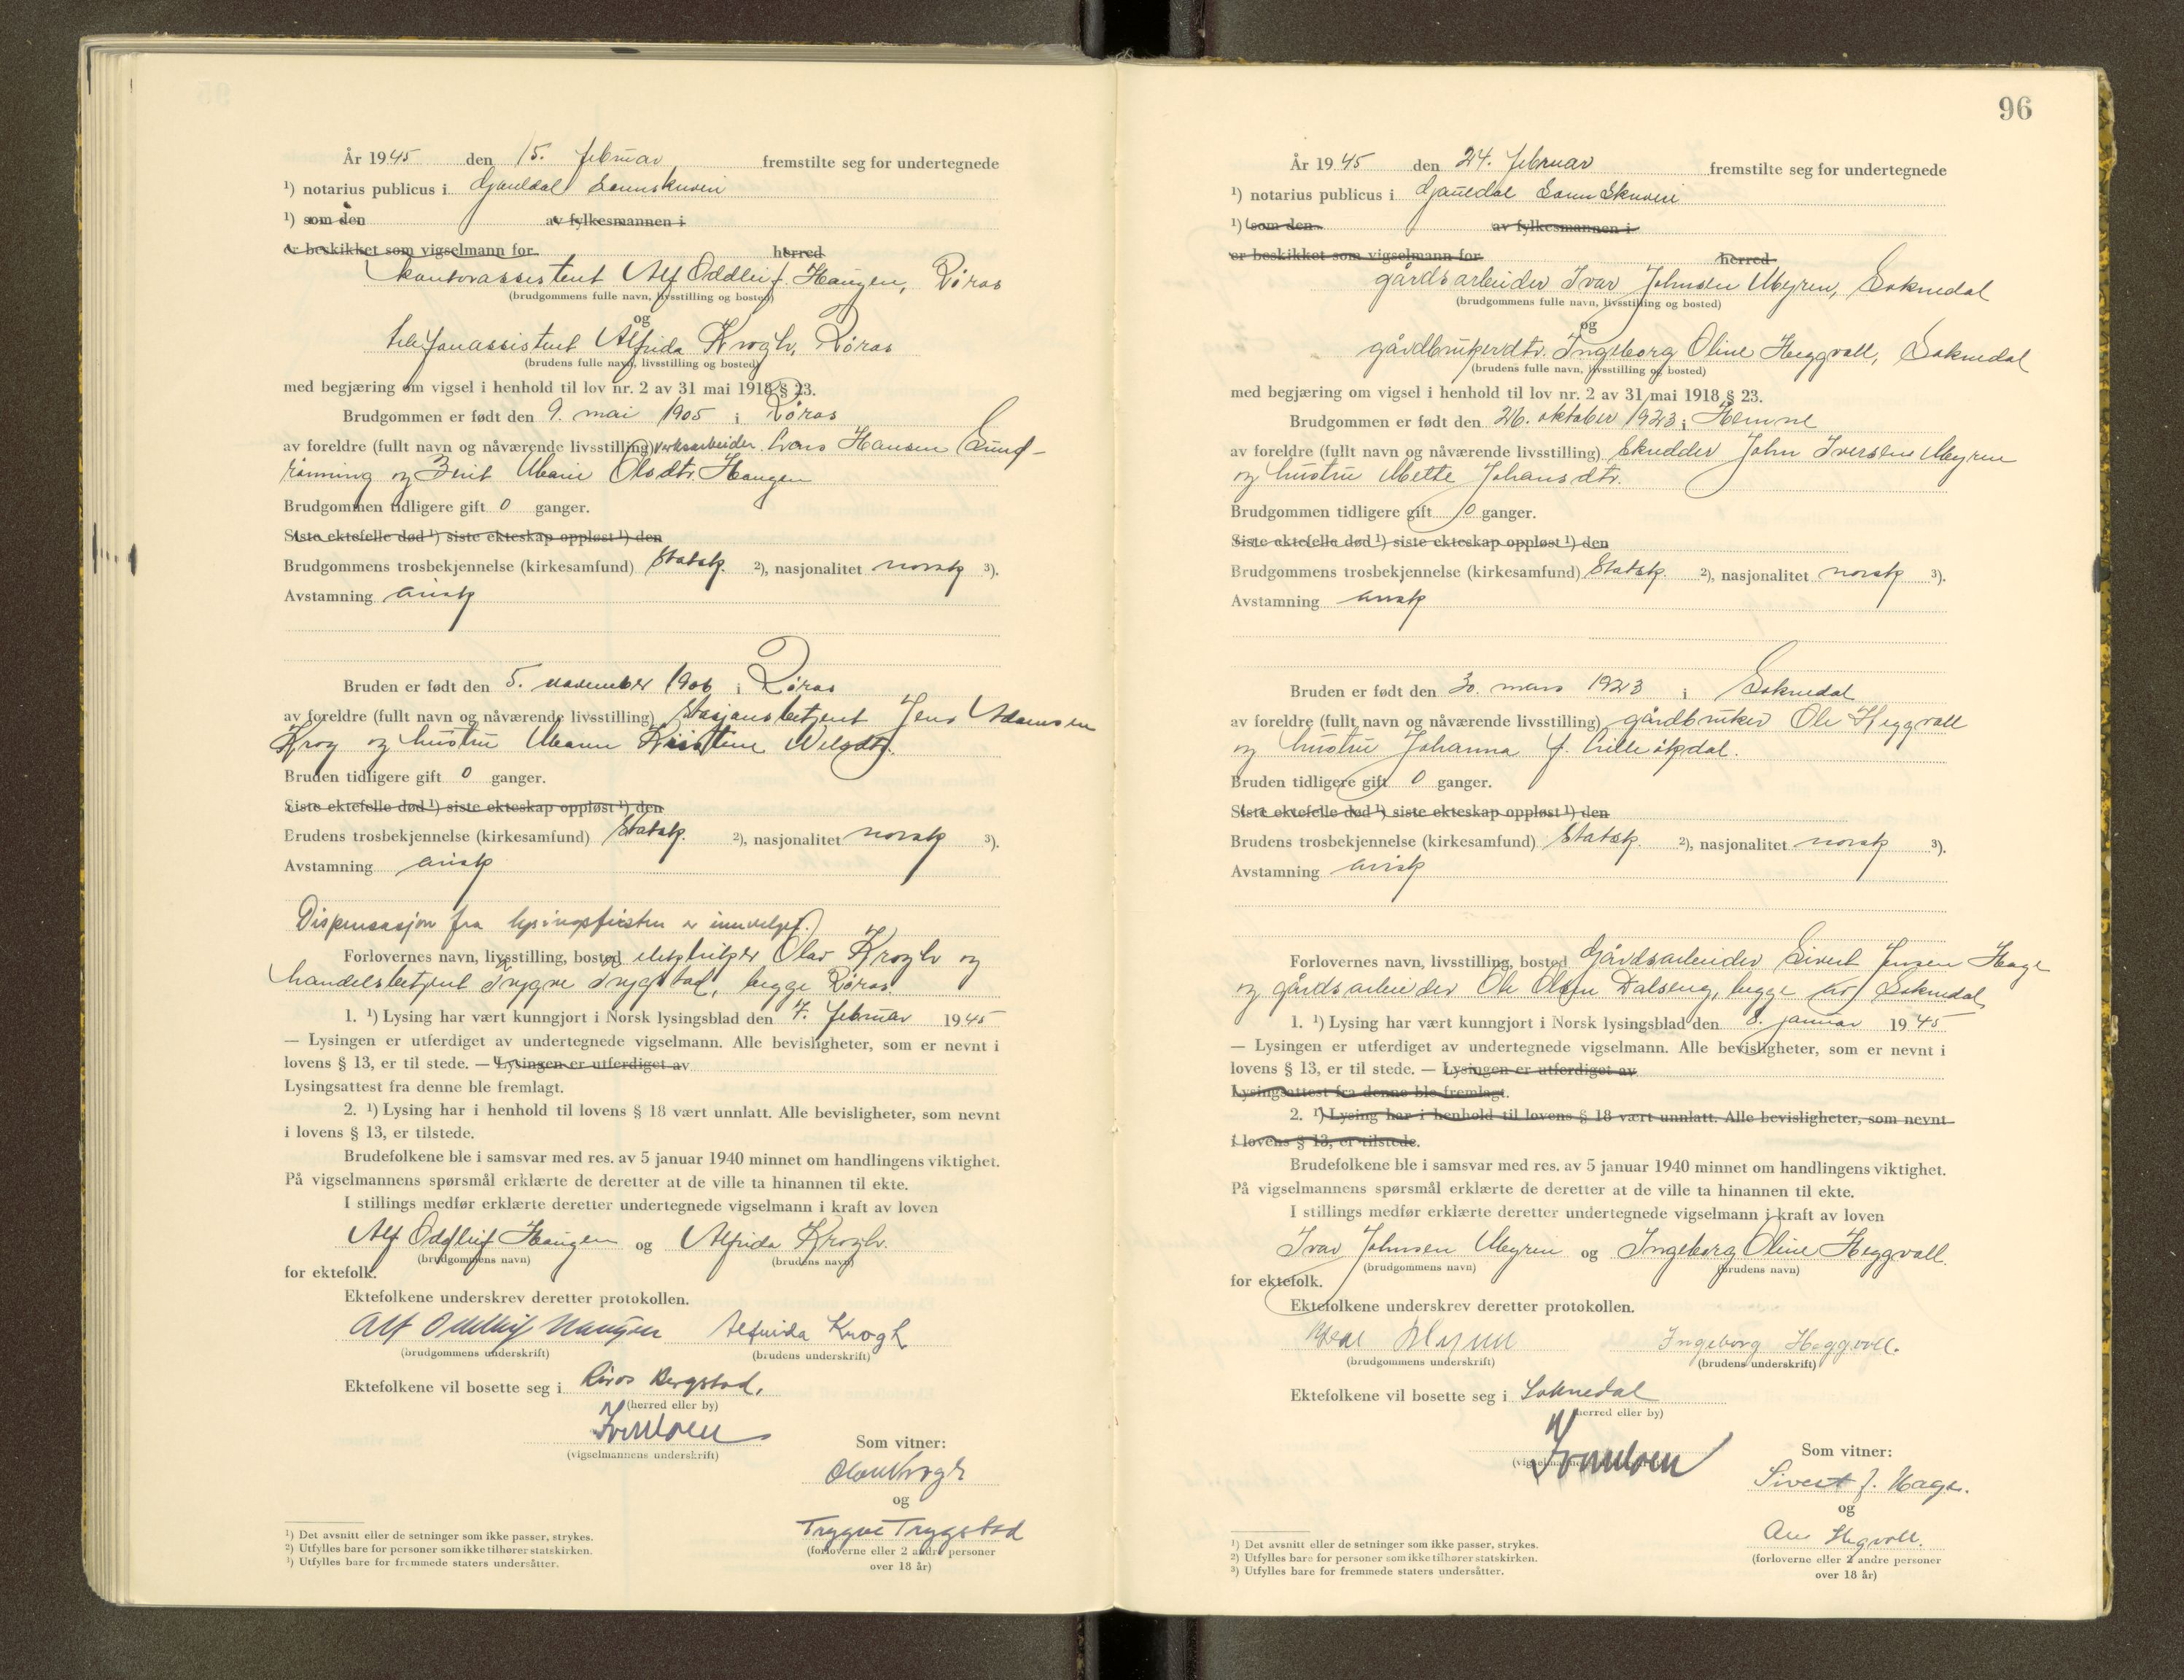 År 1945 den 15. februar fremstilte seg for undertegnede
¹) notarius publicus i Gauldal Sorenskriveri
¹) som den av fylkesmannen i
er beskikket som vigselmann for herred
kontorassistent Alf Oddleif Haugen, Røros
(brudgommens fulle navn, livsstilling og bosted)
og
telefonassistent Alfrida Krogh, Røros
(brudens fulle navn, livsstilling og bosted)
med begjæring om vigsel i henhold til lov nr. 2 av 31 mai 1918 § 23.
Brudgommen er født den 9. mai 1905 i Røros
av foreldre (fullt navn og nåværende livsstilling) verksarbeider Lars Hansen Sund-
rønning og Berit Marie Olsdtr. Haugen
Brudgommen tidligere gift 0 ganger.
Siste ektefelle død ¹) siste ekteskap oppløst ¹) den
Brudgommens trosbekjennelse (kirkesamfund) Statsk. ²), nasjonalitet norsk ³).
Avstamning arisk
Bruden er født den 5. november 1906 i Røros
av foreldre (fullt navn og nåværende livsstilling) Stasjonsbetjent Jens Adamsen
Krog og hustru Maren Kristine Nilsdtr.
Bruden tidligere gift 0 ganger.
Siste ektefelle død ¹) siste ekteskap oppløst ¹) den
Brudens trosbekjennelse (kirkesamfund) Statsk. ²), nasjonalitet norsk ³).
Avstamning arisk
Dispensasjon fra lysingsfristen er innvilget.
Forlovernes navn, livsstilling, bosted Olav Krogh og
handelsbetjent Trygve Trygstad, begge Røros.
1. ¹) Lysing har vært kunngjort i Norsk lysingsblad den 7. februar 1945
— Lysingen er utferdiget av undertegnede vigselmann. Alle bevisligheter, som er nevnt i
lovens § 13, er til stede. — Lysingen er utferdiget av
Lysingsattest fra denne ble fremlagt.
2. ¹) Lysing har i henhold til lovens § 18 vært unnlatt. Alle bevisligheter, som nevnt
i lovens § 13, er tilstede.
Brudefolkene ble i samsvar med res. av 5 januar 1940 minnet om handlingens viktighet.
På vigselmannens spørsmål erklærte de deretter at de ville ta hinannen til ekte.
I stillings medfør erklærte deretter undertegnede vigselmann i kraft av loven
Alf Oddleif Haugen og Alfrida Krogh.
(brudgommens navn) (brudens navn)
for ektefolk.
Ektefolkene underskrev deretter protokollen.
Alf Oddleif Haugen Alfrida Krogh
(brudgommens underskrift) (brudens underskrift)
Ektefolkene vil bosette seg i Røros Bergstad.
(herred eller by)
(vigselmannens underskrift)
Som vitner:
Olav Krogh
og
Trygve Trygstad
(forloverne eller 2 andre personer
over 18 år)
¹) Det avsnitt eller de setninger som ikke passer, strykes.
²) Utfylles bare for personer som ikke tilhører statskirken.
³) Utfylles bare for fremmede staters undersåtter.
96
År 1945 den 24. februar fremstilte seg for undertegnede
¹) notarius publicus i Gauldal Sorenskriveri
¹) som den av fylkesmannen i
er beskikket som vigselmann for herred
gårdsarbeider Ivar Johnsen Myren, Soknedal
(brudgommens fulle navn, livsstilling og bosted)
og
gårdbrukerdtr. Ingeborg Oline Heggvoll, Soknedal
(brudens fulle navn, livsstilling og bosted)
med begjæring om vigsel i henhold til lov nr. 2 av 31 mai 1918 § 23.
Brudgommen er født den 26. oktober 1923 i Hemne
av foreldre (fullt navn og nåværende livsstilling) Skredder John Iversen Myren
og hustru Mette Johansdtr.
Brudgommen tidligere gift 0 ganger.
Siste ektefelle død ¹) siste ekteskap oppløst ¹) den
Brudgommens trosbekjennelse (kirkesamfund) Statsk. ²), nasjonalitet norsk ³).
Avstamning arisk
Bruden er født den 30. mars 1923 i Soknedal
av foreldre (fullt navn og nåværende livsstilling) gårdbruker Ole Heggvoll
og hustru Johanna f. Lilleøkdal.
Bruden tidligere gift 0 ganger.
Siste ektefelle død ¹) siste ekteskap oppløst ¹) den
Brudens trosbekjennelse (kirkesamfund) Statsk. ²), nasjonalitet norsk ³).
Avstamning arisk
Forlovernes navn, livsstilling, bosted Gårdsarbeider Sivert Jensen Hage
og gårdsarbeider Ole Olsen Dalseng, begge av Soknedal
1. ¹) Lysing har vært kunngjort i Norsk lysingsblad den 8. januar 1945
— Lysingen er utferdiget av undertegnede vigselmann. Alle bevisligheter, som er nevnt i
lovens § 13, er til stede. — Lysingen er utferdiget av
Lysingsattest fra denne ble fremlagt.
2. ¹) Lysing har i henhold til lovens § 18 vært unnlatt. Alle bevisligheter, som nevnt
i lovens § 13, er tilstede.
Brudefolkene ble i samsvar med res. av 5 januar 1940 minnet om handlingens viktighet.
På vigselmannens spørsmål erklærte de deretter at de ville ta hinannen til ekte.
I stillings medfør erklærte deretter undertegnede vigselmann i kraft av loven
Ivar Johnsen Myren og Ingeborg Oline Heggvoll.
(brudgommens navn) (brudens navn)
for ektefolk.
Ektefolkene underskrev deretter protokollen.
Ivar Myren Ingeborg Heggvoll.
(brudgommens underskrift) (brudens underskrift)
Ektefolkene vil bosette seg i Soknedal
(herred eller by)
Som vitner:
Sivert J. Hage.
og
Hegvoll.
(forloverne eller 2 andre personer
over 18 år)
¹) Det avsnitt eller de setninger som ikke passer, strykes.
²) Utfylles bare for personer som ikke tilhører statskirken.
³) Utfylles bare for fremmede staters undersåtter.